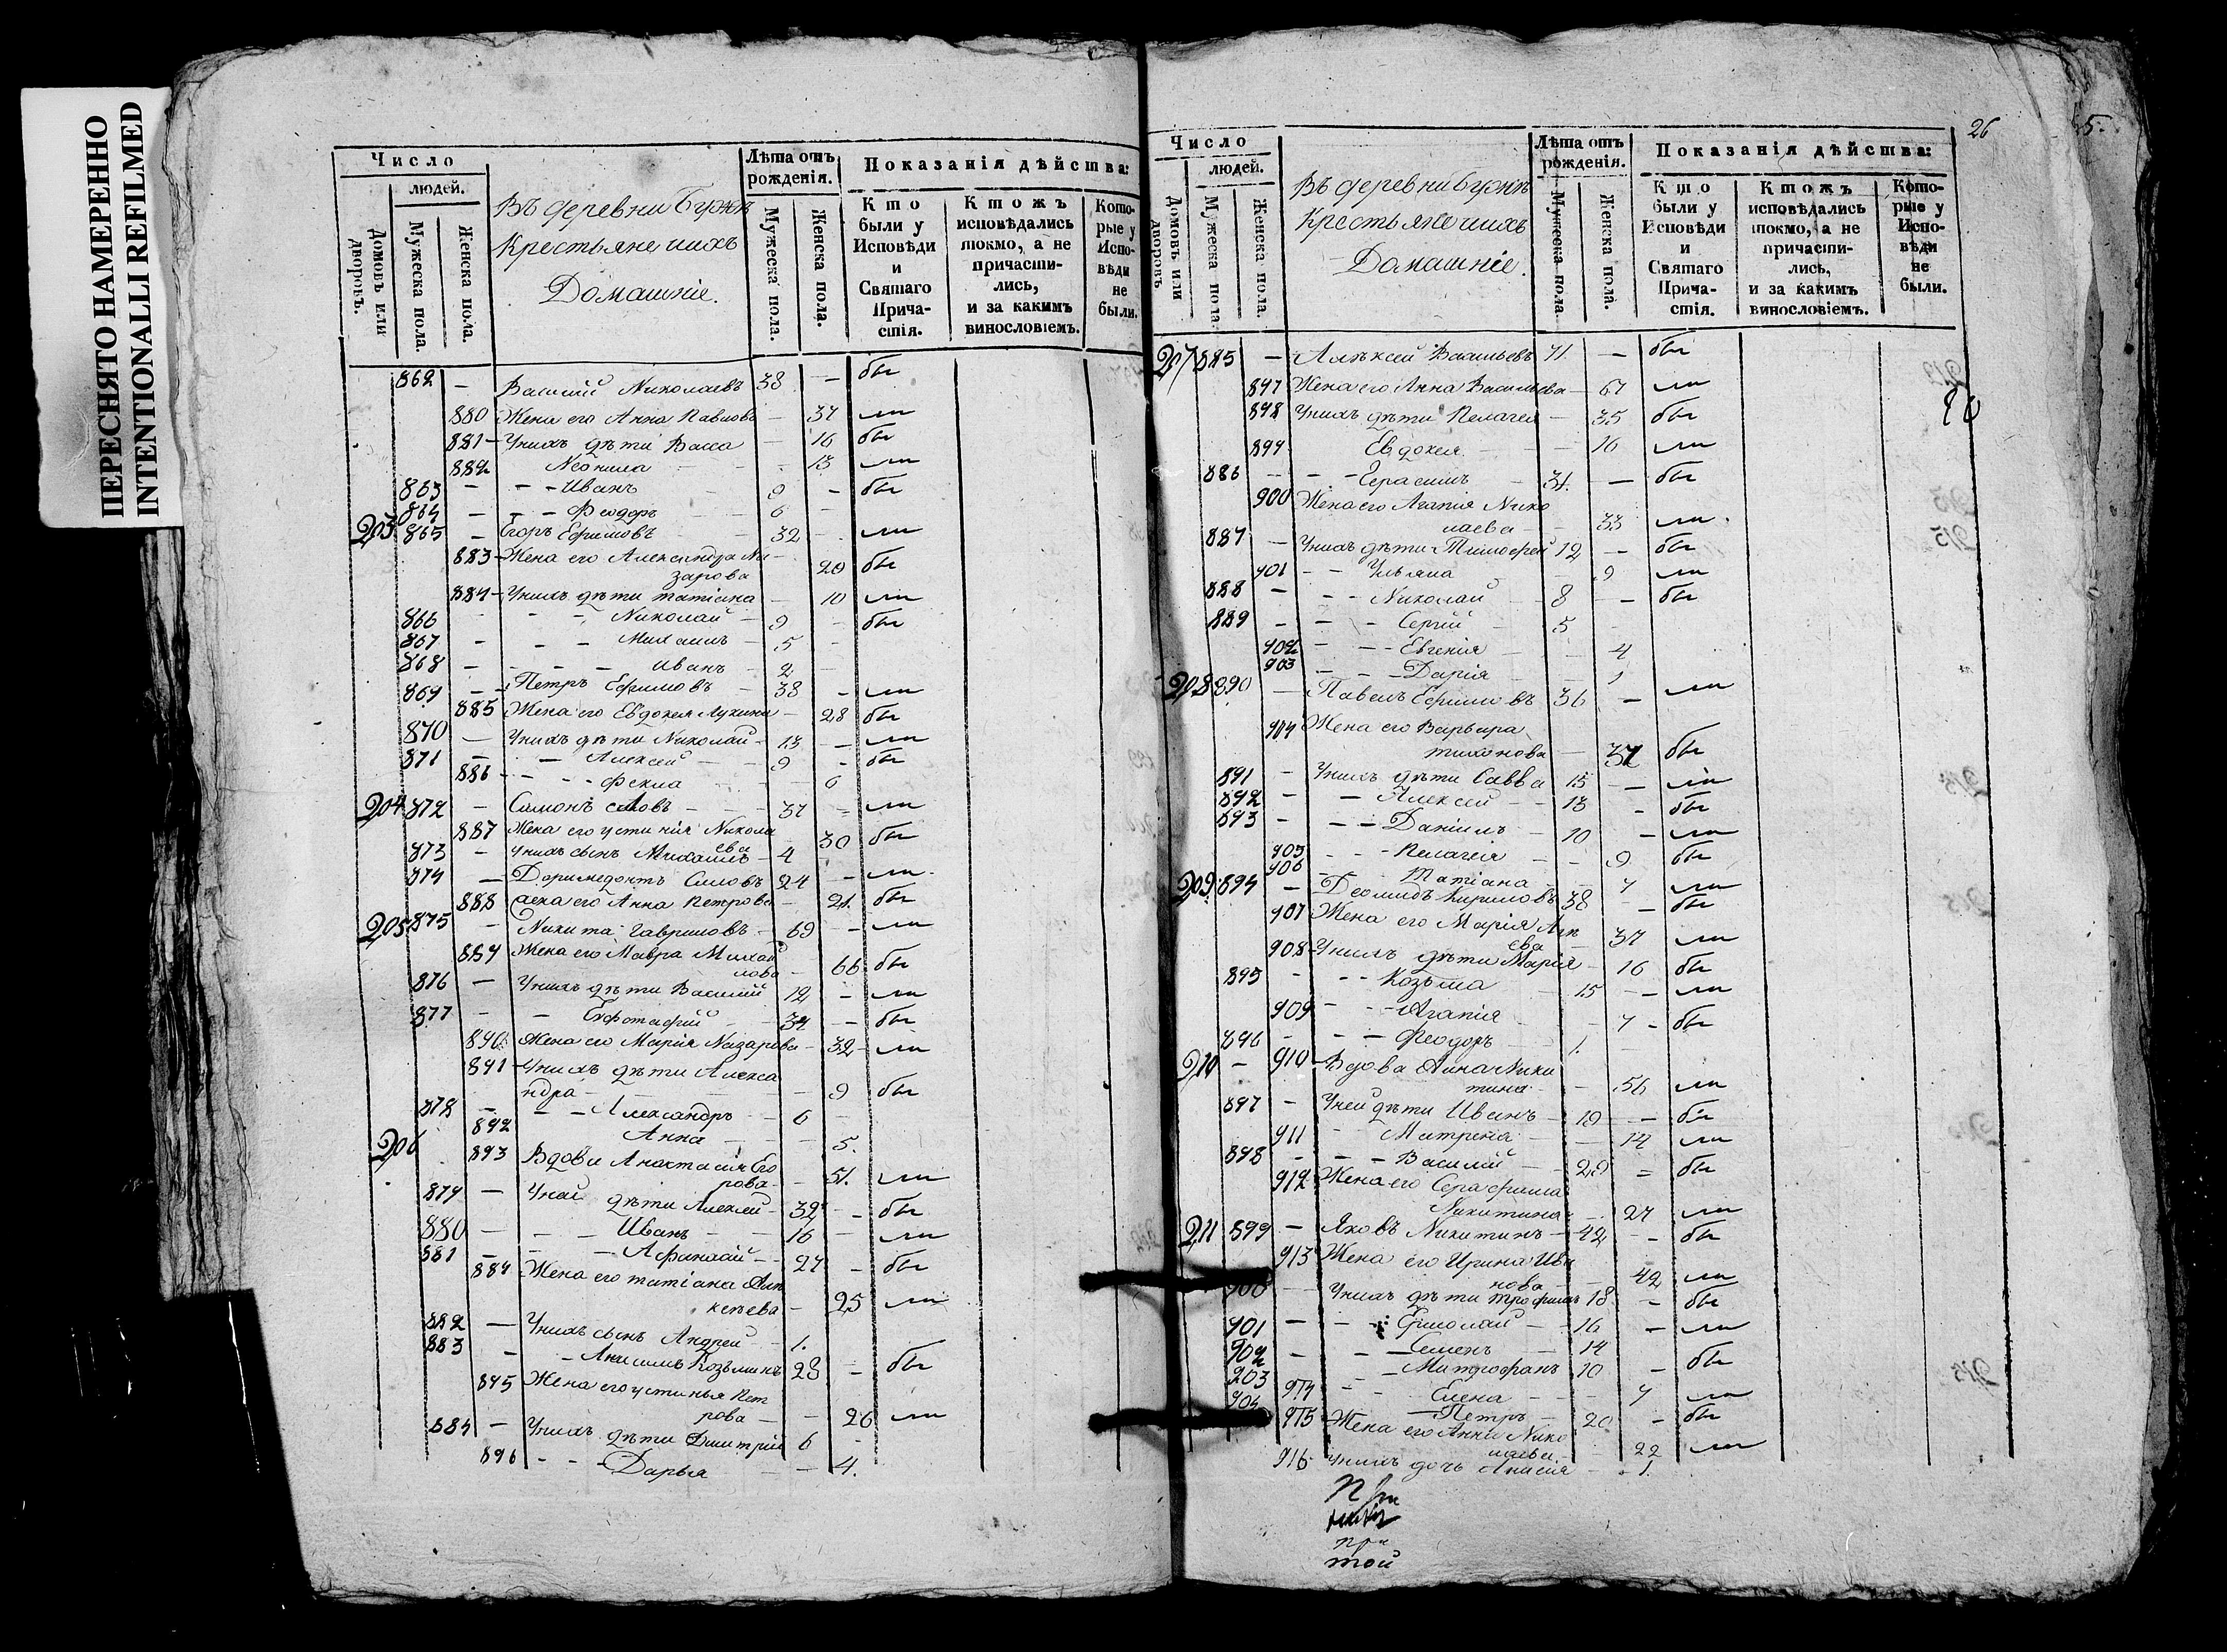 ПЕРЕСНЯТО НАМЕРЕННО
INTENTIONALLI REFILMED
Число
людей.
Домовъ или дворовъ.
Мужеска пола.
Женска пола.
Въ деревни
Крестьяне ихъ
Домашніе.
Лѣта отъ рожденія.
Мужеска пола.
Женска пола.
Показанія дѣйства:
Кто были у Исповѣди и Святаго Причастія.
Ктожъ исповѣдались токмо, а не причастились, и за какимъ винословіемъ.
Которые у Исповѣди не были.
862 — Василий Николаевъ 38 — бы
880 Жена его Анна Павлова — 37 ли
881 — У нихъ дѣти Васса — 16 бы
882 Неонила — 13 ли
863 — Иванъ 9 — бы
864 — Феодоръ 6 —
203 865 — Егоръ Ефимовъ 32 — ли
883 — Жена его Александра На
зарова 29 бы
884 — У нихъ дѣти Татіана — 10 ли
866 — Николай — 9 — бы
867 — Михаилъ — 5 —
868 — Иванъ — 2 —
869 — Петръ Ефимовъ — 38 — ли
885 Жена его Евдокея Лукина — 28 бы
870 — У нихъ дѣти Николай — 13 — ли
871 — Алексей — 9 — бы
886 — Фекла — 6
204 872 — Симонъ 37 — ли
887 Жена его Устинія Никола
ева 30 бы
873 — У нихъ сынъ Михаилъ — 4 —
874 — Доримедонтъ Силовъ 24 — ли
888 его Анна Петрова — 21 бы
205 875 — Никита Гавриловъ — 69 — ли
889 Жена его Мавра Михай
лова — 66 бы
876 — У нихъ дѣти Василий 12 — ли
877 — 34 — бы
890 Жена его Марія Назарова — 32 — ли
891 — У нихъ дѣти Алекса
ндра — 9 бы
878 — Александръ — 6 —
892 Анна — 5.
206 893 Вдова Анастасія Его
рова — 51. ли
879 — У ней дѣти Алексей — 32 — бы
880 — Иванъ — 16 — ли
881 — Афанасий — 27 — бы
894 Жена его Татіана Але
кѣева — 25 ли
882 — У нихъ сынъ Андрей — 1.
883 — Анисимъ Козьминъ 28 — бы
895 Жена его Устинья Пет
рова — 26 ли
884 — У нихъ дѣти Димитрий 6 —
896 — Дарья — 4.
26
5.
Число
людей.
Домовъ или дворовъ.
Мужеска пола.
Женска пола.
Въ деревни
Крестьяне ихъ
Домашніе.
Лѣта отъ рожденія.
Мужеска пола.
Женска пола.
Показанія дѣйства:
Кто были у Исповѣди и Святаго Причастія.
Ктожъ исповѣдались токмо, а не причастились, и за какимъ винословіемъ.
Которые у Исповѣди не были.
207 885 — Алѣксей Васильевъ 71. — бы
897 Жена его Анна Васильева — 67 ли
898 У нихъ дѣти Пелагея — 35 бы
899 Евдокея — 16 ли
886 — Герасимъ 31. — бы
900 Жена его Агапія Нико
лаева — 33 ли
887 — У нихъ дѣти Тимофей 12 — бы
901 — Ульяна — 9 ли
888 — Николай — 8 — бы
889 — Сергий 5 —
902 — Евгенія — 4
903 — Дарія — 1
208 890 — Павелъ Ефимовъ 36 — ли
904 Жена его Варвара
Тихонова — 37 бы
891 — У нихъ дѣти Савва 15 — ли
892 — Алексей — 13 — бы
893 — Даніилъ — 10 — ли
905 — Пелагея — 9 бы
906 — Татіана — 7 ли
209 894 — Деомидъ Кириловъ 38 — бы
907 Жена его Марія Але
ева — 37 ли
908 — У нихъ дѣти Марія — 16 бы
895 — Козьма 15 — ли
909 — Агапія — 7 — бы
896 — Феодоръ — 1.
210 — 910 — Вдова Анна Ники
тина — 56 ли
897 — У ней дѣти Иванъ — 19 — бы
911 — Матрена — 14 ли
898 — Василий — 29 — бы
912 Жена его Серафима
Никитина — 27 ли
211 899 — Яковъ Никитинъ — 42 — бы
913 Жена его Ирина Ива
нова — 42 ли
900 — У нихъ дѣти Трофимъ 18 — бы
901 — Ермолай — 16 — ли
902 — Семенъ 14
903 — Митрофанъ 10 — бы
914 — Елена — 7 ли
904 — Петръ — 20 — бы
915 Жена его Анна Нико
лаева — 22 ли
916 У нихъ дочь Анисия — 1.
той